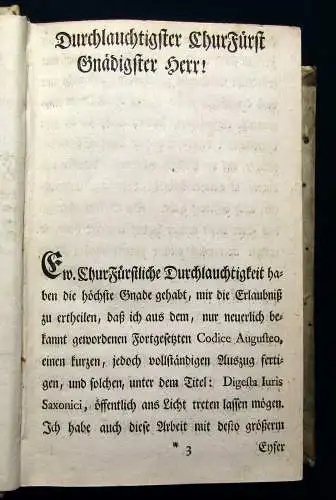 Durchlauchtigster ChurFürst
Gnädigster Herr!
Ew. ChurFürstliche Durchlauchtigkeit ha-
ben die höchste Gnade gehabt, mir die Erlaubniß
zu ertheilen, daß ich aus dem, nur neuerlich be-
kannt gewordenen Fortgesetzten Codice Augusteo,
einen kurzen, jedoch vollständigen Auszug ferti-
gen, und solchen, unter dem Titel: Digesta Iuris
Saxonici, öffentlich ans Licht treten lassen mögen.
Ich habe auch diese Arbeit mit desto größerm
* 3 Eyfer